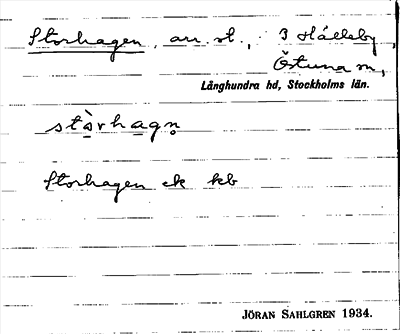 Storhagen, arr. st., 3 Hålleby,
Östuna sn,
Långhundra hd, Stockholms län.
stòrhagn̥
Storhagen ek kb
JÖRAN SAHLGREN 1934.